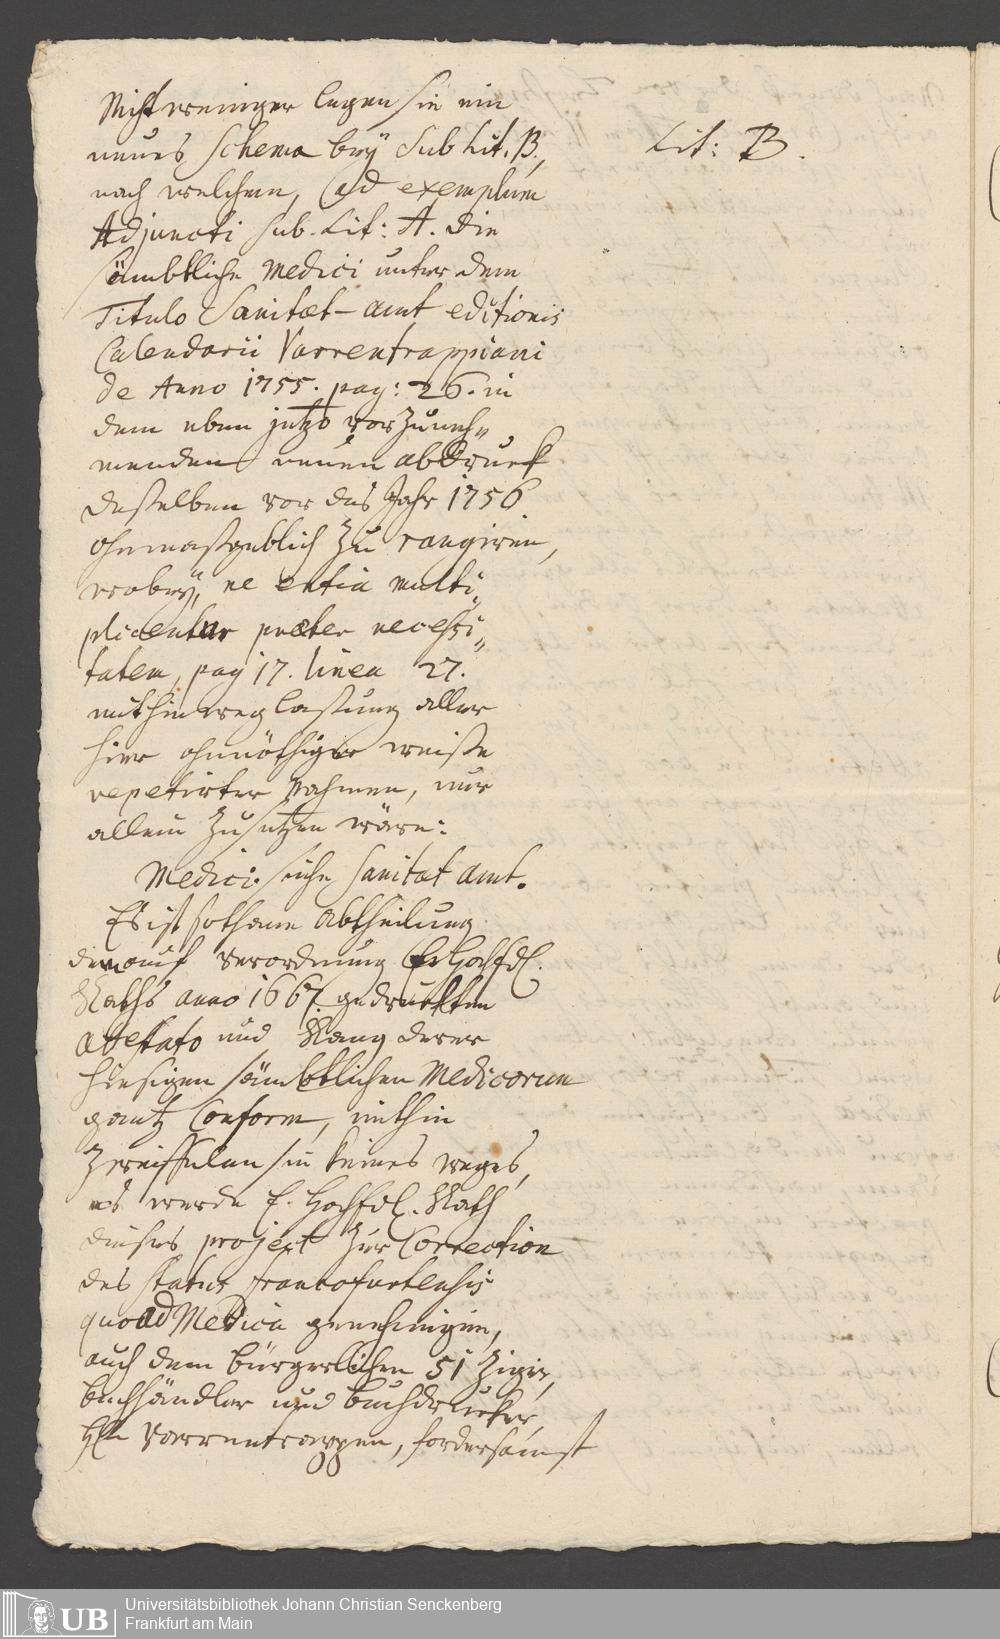 Nicht weniger legen sie ein
neues Schema bey Sub Lit. B.,
Lit: B.
nach welchem, (ad exemplum
Adjuncti sub. Lit: A. die
sämbtliche Medici unter dem
Titulo Sanitæt-amt editionis
Calendarii Varrentrappiani
de Anno 1755. pag: 26. in
dem eben jetzo vorzuneh„
menden neuen abdruck
deßelben vor das Jahr 1756
ohnmaßgeblich zu rangiren,
wobey, ne entia multi„
plicentur præter necessi„
tatem, pag 17. linea 27.
mit hinweglaßung aller
hier ohnnöthiger weiße
repetirter Nahmen, nur
allein zusetzen wäre:
Medici siehe Sanitat amt.
Es ist sothane Abtheilung
der auf Verordnung E. Hochedl.
Raths anno 1667. gedruckten
attestato und Rang derer
hiesigen sämbtlichen Medicorum
gantz Conform, mithin
zweiffelen sie keines weges,
es werde E. Hochedl. Rath
dieses project zur Correction
des status francofurtensis
quoad Medica genehmigen,
auch dem bürgerlichen 51 ziger,
buchhändler und buchdrucker,
Hln Varrentrappen, fordersamst
Universitätsbibliothek Johann Christian Senckenberg
Frankfurt am Main
UB